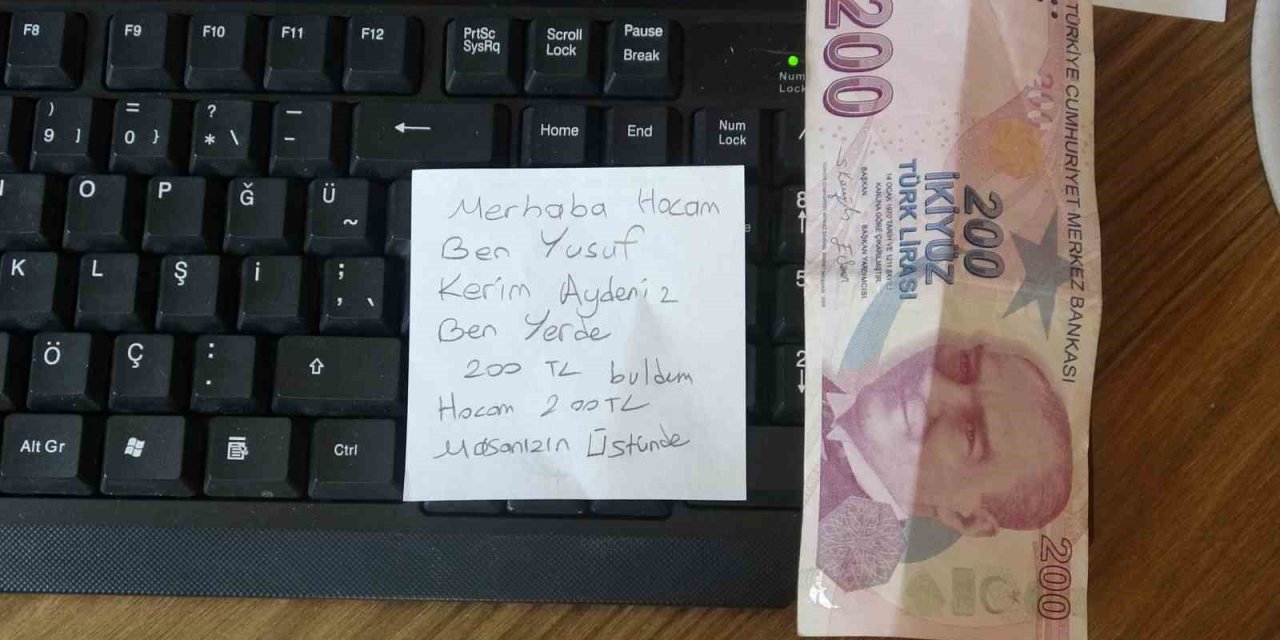 F8
F9
F10
F11
F12
PrtSc
SysRq
Scroll
Lock
Pause
Break
Num
Lock
)
9 ]
=
0 }
?
* \
–
-
←
Home
End
Num
Lock
/
O
P
Ğ
Ü
~
8
↑
K
L
Ş
İ
;
, `
5
Ö
Ç
:
.
⇧
2
↓
Alt Gr
Ctrl
Merhaba Hocam
Ben Yusuf
Kerim Aydeniz
Ben Yerde
200 TL buldum
Hocam 200TL
Masanızın Üstünde
200
TÜRKİYE CUMHURİYET MERKEZ BANKASI
200
İKİYÜZ
TÜRK LİRASI
14 OCAK 1970 TARİH VE 1211 SAYILI
KANUNA GÖRE ÇIKARILMIŞTIR.
BAŞKAN
BAŞKAN YARDIMCISI
200